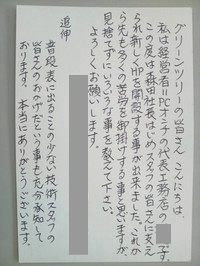 グリーンツリーの皆さんこんにちは、
私は経営者一PCオンチの代表工務店の
です。
この度は森田社長はじめスタッフの皆さんに支え
られ新しくHPを開設する事が出来ました。これか
ら先も多くの苦労を御掛けする事と思いますが、
見捨てずにいろいろな事を教えて下さい。
よろしくお願いします。
追伸
普段表に出ることの少ない技術スタッフの
皆さんのおかげだという事も充分承知して
おります。本当にありがとうございます。